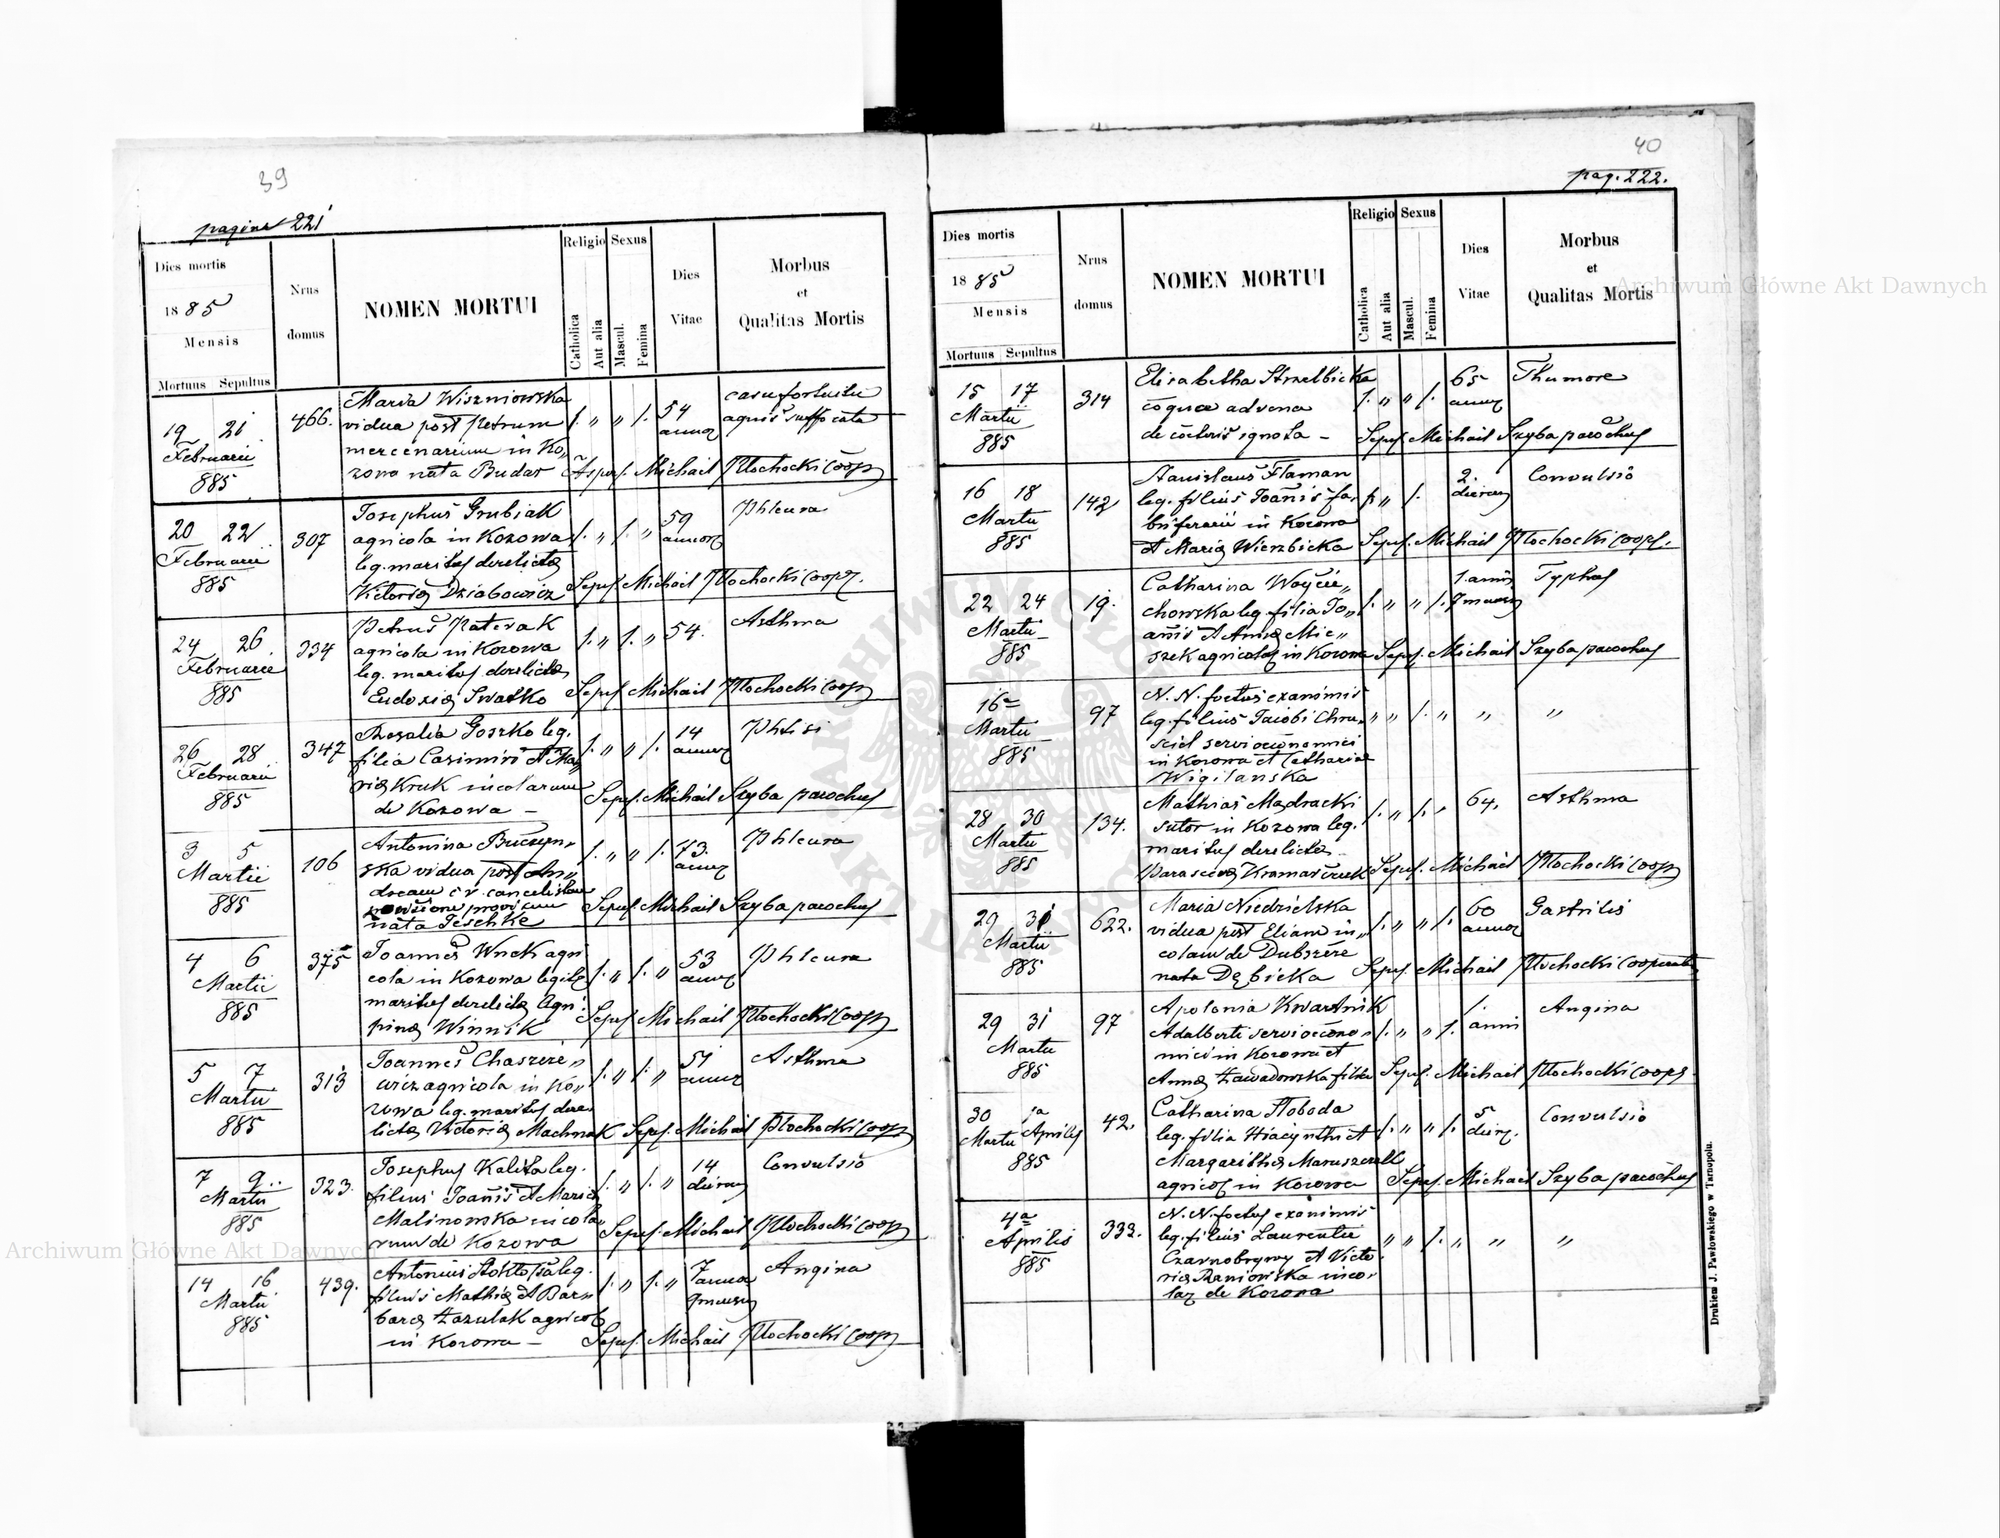 39
pagina 221
Dies mortis
1885
Mensis
Mortuus Sepultus
Nrus
domus
NOMEN MORTUI
Religio Sexus
Catholica
Aut alia
Mascul.
Femina
Dies
Vitae
Morbus
et
Qualitas Mortis
19 21
Februarii
885
466.
Maria Wiszniowska
vidua post Petrum
mercenarium in Ko„
zowa nata Budar
1. „ „ 1.
54
annor
casu fortuitu
aquis suffocata
Michail Płochocki coop
20 22
Februarii
885
307
Josephus Grubiak
agricola in Kozowa
leg. maritus derelictae
Victoriae Dziabowicz
1. „ 1. „
59
annor
Phleura
Sepel. Michail Płochocki coop.
24 26
Februarii
885
334
Petrus
agricola in Kozowa
leg. maritus derelictae
Eudoxiae Swatko
1. „ 1. „
54.
Asthma
Sepel. Michail Płochocki coop
26 28
Februarii
885
347
Rosalia Goszko leg.
filia Casimiri et Ma„
riae Kruk incolarum
de Kozowa –
1. „ „ 1.
14
annor
Phtisi
Sepel. Michail Szyba parochus
3 5
Martii
885
106
Antonina Buczyn„
ska vidua post An„
dream c. r.
nata Teschke
1. „ „ 1.
73.
annor
Phleura
Sepel. Michail Szyba parochus
4 6
Martii
885
375
Joannes Wnek agri
cola in Kozowa legit.
maritus derelictae Agri„
pinae Winnik
1. „ 1. „
53
annor
Phleura
Sepel. Michail Płochocki coop
5 7
Martii
885
313
Joannes
agricola in Ko„
zowa leg. maritus dere
lictae Victoriae Machnak
1. „ 1. „
51
annor
Asthma
Sepel. Michail Płochocki coop
7 9
Martii
885
323.
Josephus Kalita leg.
filius Joannis et Mariae
Malinowska incola„
rum de Kozowa
1. „ 1. „
14
dierum
Convulsio
Sepel. Michail Płochocki coop
14 16
Martii
885
439.
Antonius leg.
filius Mathiae et Bar„
barae Zazulak agricol
in Kozowa –
1. „ 1. „
7 annor
Angina
Sepel. Michail Płochocki coop
40
pag. 222.
Dies mortis
1885
Mensis
Mortuus Sepultus
Nrus
domus
NOMEN MORTUI
Religio Sexus
Catholica
Aut alia
Mascul.
Femina
Dies
Vitae
Morbus
et
Qualitas Mortis
15 17
Martii
885
314
Elisabetha Strzelbicka
coqua advena
de coeteris ignota –
1. „ „ 1.
65
annor
Thumore
Sepel. Michail Szyba parochus
16 18
Martii
885
142
Stanislaus Flaman
leg. filius Joannis fa„
briferarii in Kozowa
et Mariae Wierzbicka
2.
dierum
Convulsio
Sepel. Michail Płochocki coop.
22 24
Martii
885
19.
Catharina Wojcie„
chowska leg. filia Jo„
annis et Annae Mie„
szek agricolae in Kozowa
1. „ „ 1.
1. anni
7 mensum
Typhus
Sepel. Michail Szyba parochus
16
Martii
885
97
N. N. foetus exanimis
leg. filius Jacobi Chru„
in Kozowa et Catharinae
Wigilanska
„ „ 1. „
„
„
28 30
Martii
885
134.
Mathias Mądracki
sutor in Kozowa leg.
maritus derelictae
Parasceviae Kramarczuk
1. „ 1. „
64.
Asthma
Sepel. Michail Płochocki coop
29 31
Martii
885
622.
Maria Niedzielska
vidua post Eliam in„
colam de Dubszcze
nata Dębicka
1. „ „ 1.
60
annor
Gastritis
Sepel. Michail Płochocki cooperator
29 31
Martii
885
97
Apolonia Kwartnik
Adalberti
in Kozowa et
Annae Zawadowska filia
1. „ „ 1.
1.
anni
Angina
Sepel. Michail Płochocki coop.
30 1a
Martii Aprilis
885
42.
Catharina Słoboda
leg. filia Hiacynthi et
Margarithae
agricol in Kozowa
1. „ „ 1.
5
dier.
Convulsio
Sepel. Michail Szyba parochus
4a
Aprilis
885
333.
N. N. foetus exanimis
leg. filius Laurentii
Czarnobrywy et Victo
riae Raniowska inco„
lar de Kozowa
„ „ 1. „
„
„
Drukiem J. Pawłowskiego w Tarnopolu.
Archiwum Główne Akt Dawnych
Archiwum Główne Akt Dawnych